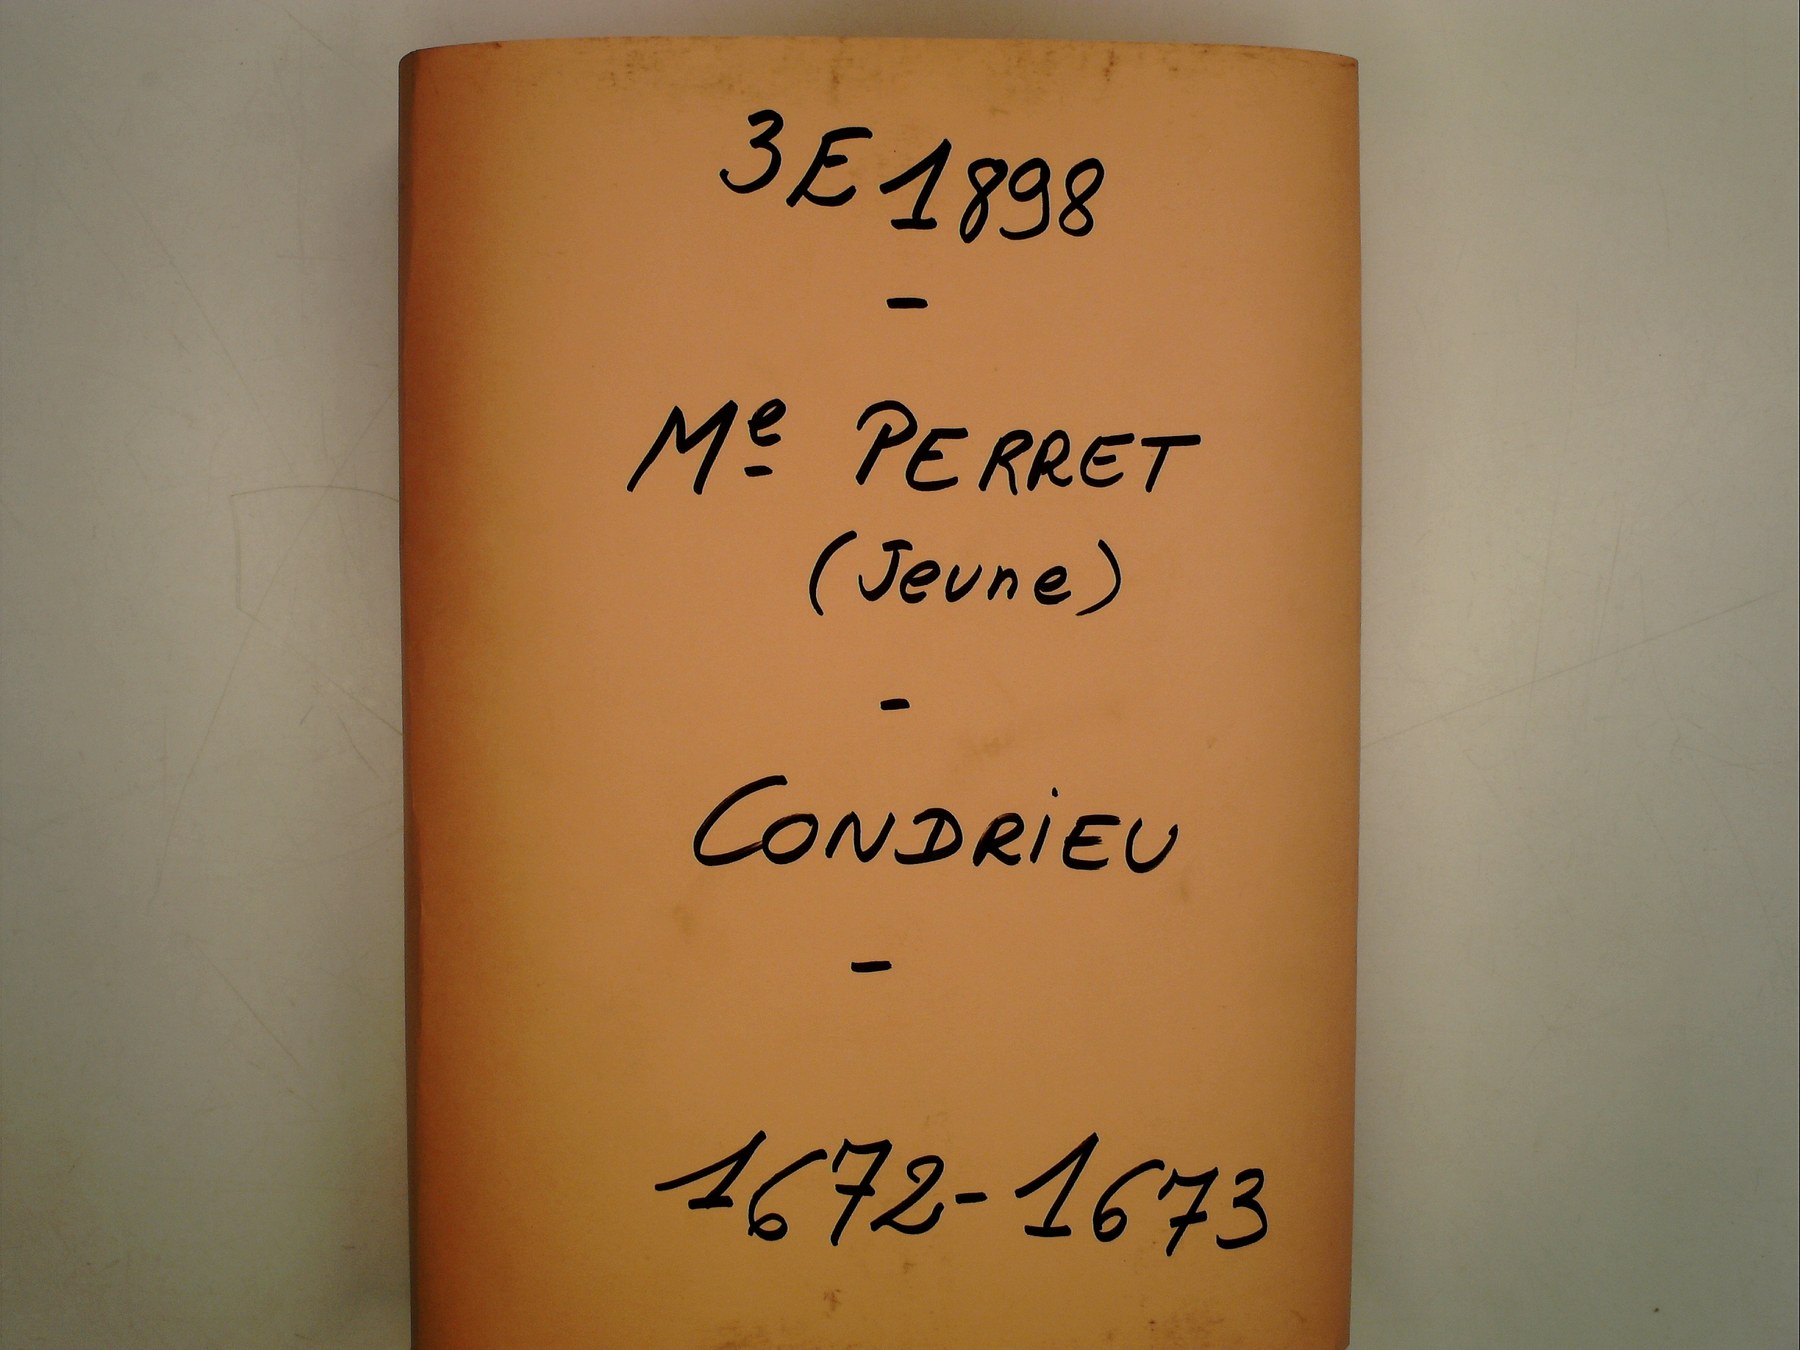 3E 1898
-
Me PERRET
(Jeune)
-
CONDRiEU
-
1672-1673